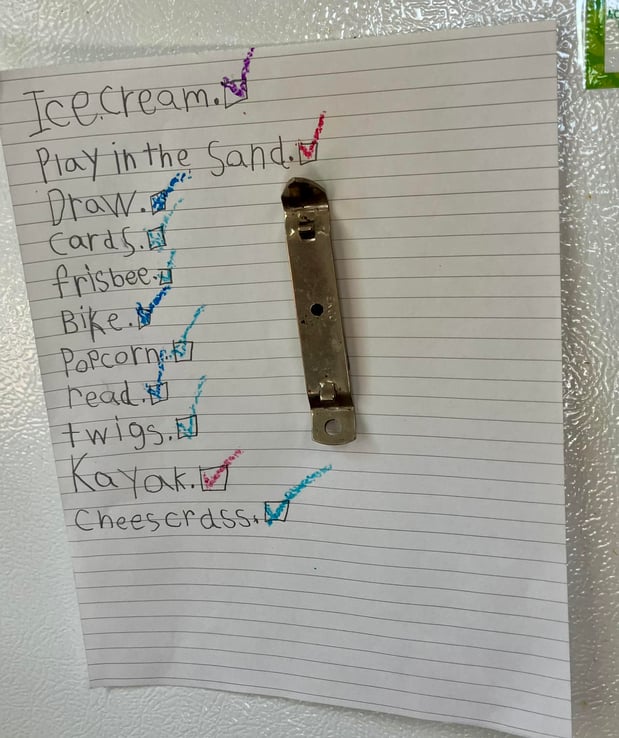 Ice.cream.
Play in the Sand.
Draw.
cards.
frisbee.
Bike.
Popcorn.
read.
twigs.
Kayak.
cheescrass.